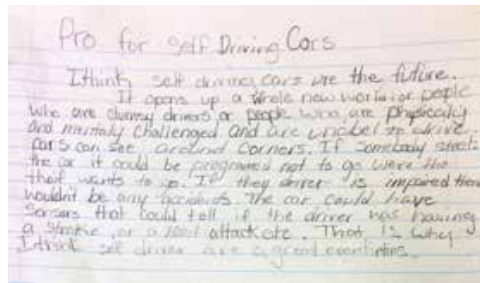 Pro for self Driving Cars
I think self driving cars are the future.
It opens up a whole new world for people
who are clumsy drivers or people who are physically
and mentaly challenged and are unabel to drive.
cars can see around corners. If somebody steels
the car it could be programed not to go were the
theif wants to go. If they driver is impaired there
wouldn't be any accidents. The car could have
sensors that could tell if the driver was having
a stroke, or a attack etc. That is why
I think self driver are a great